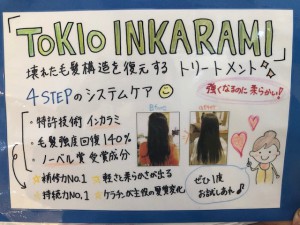 「TOKIO INKARAMI」
壊れた毛髪構造を復元する トリートメント
4 STEPのシステムケア
強くなるのに柔らかい♡
・特許技術 インカラミ
・毛髪強度回復140%
・ノーベル賞 受賞成分
☆補修力No.1 ☆軽さと柔らかさが出る
☆持続力No.1 ☆ケラチンが主役の髪質変化
ぜひ1度
お試しあれ♪